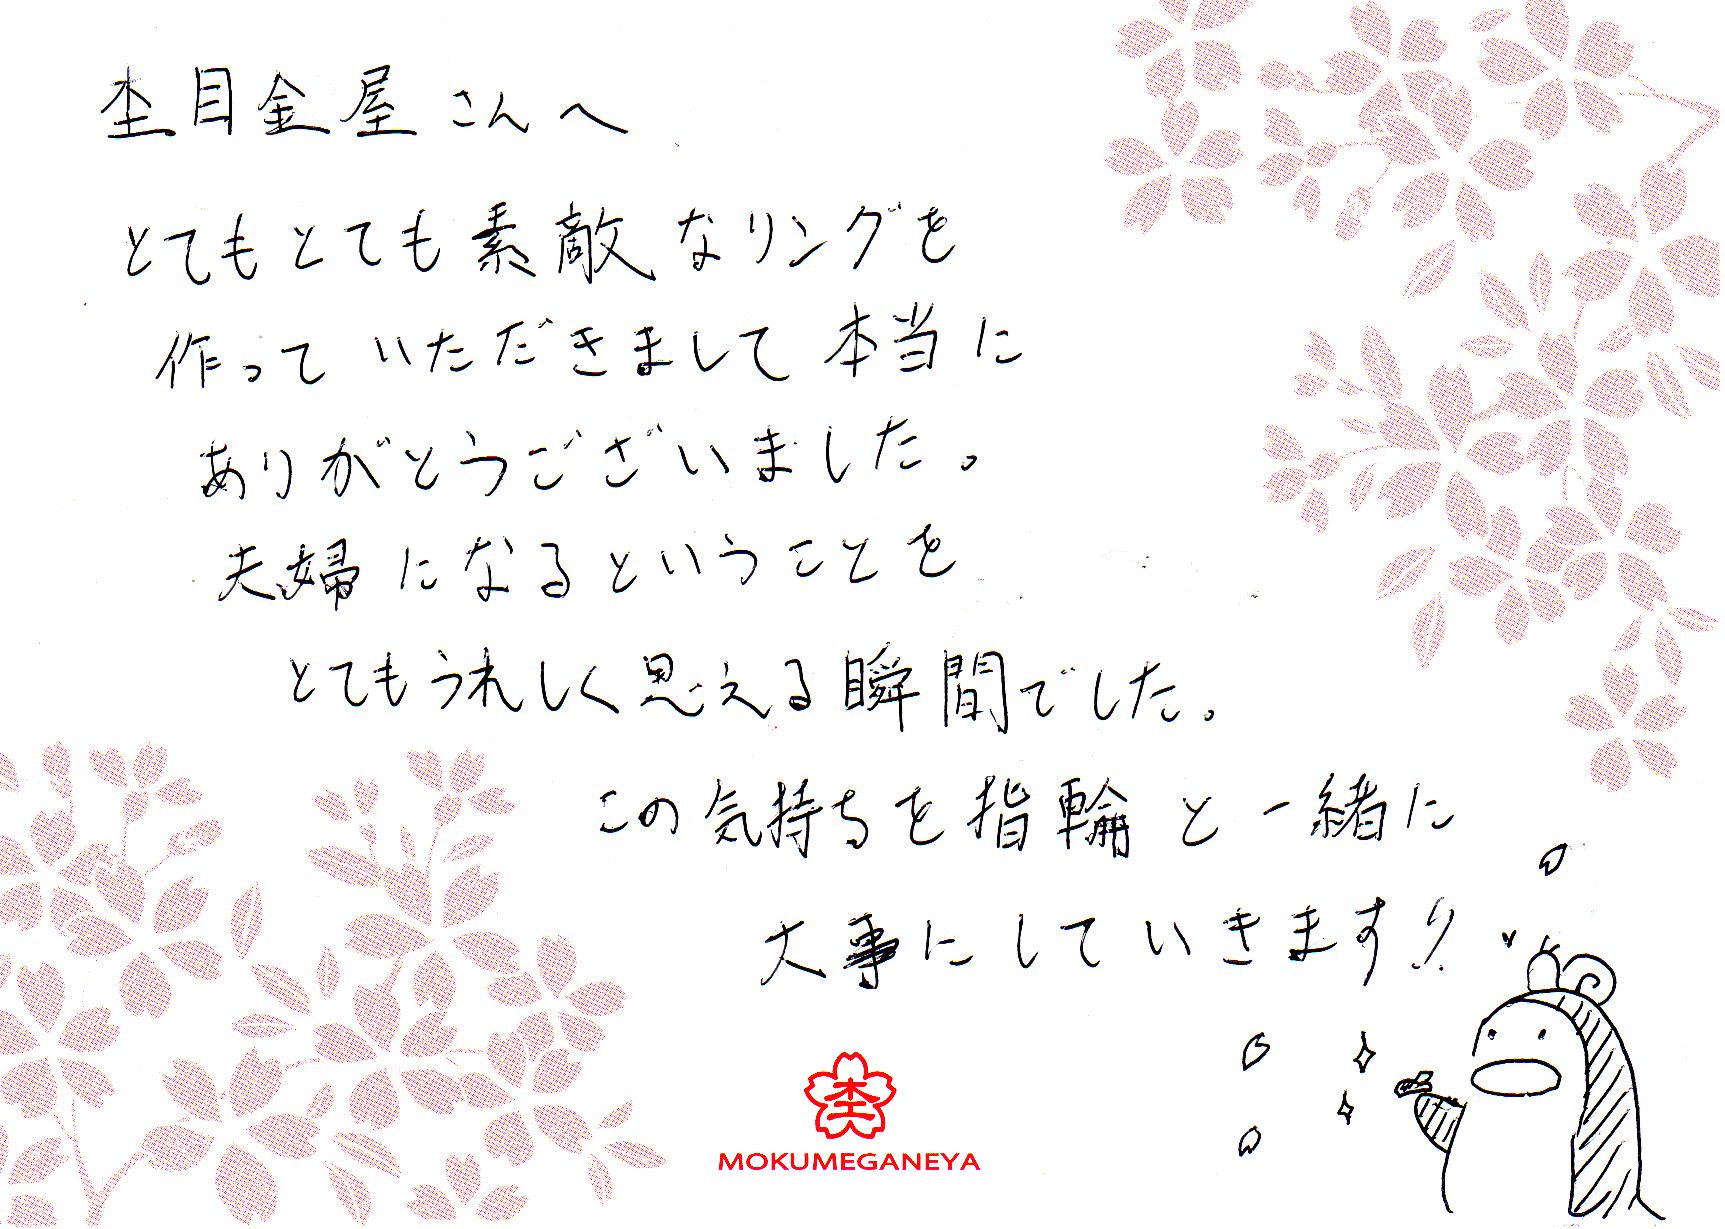 杢目金屋さんへ
とてもとても素敵なリングを
作っていただきまして本当に
ありがとうございました。
夫婦になるということを
とてもうれしく思える瞬間でした。
この気持ちを指輪と一緒に
大事にしていきます!!
杢
MOKUMEGANEYA